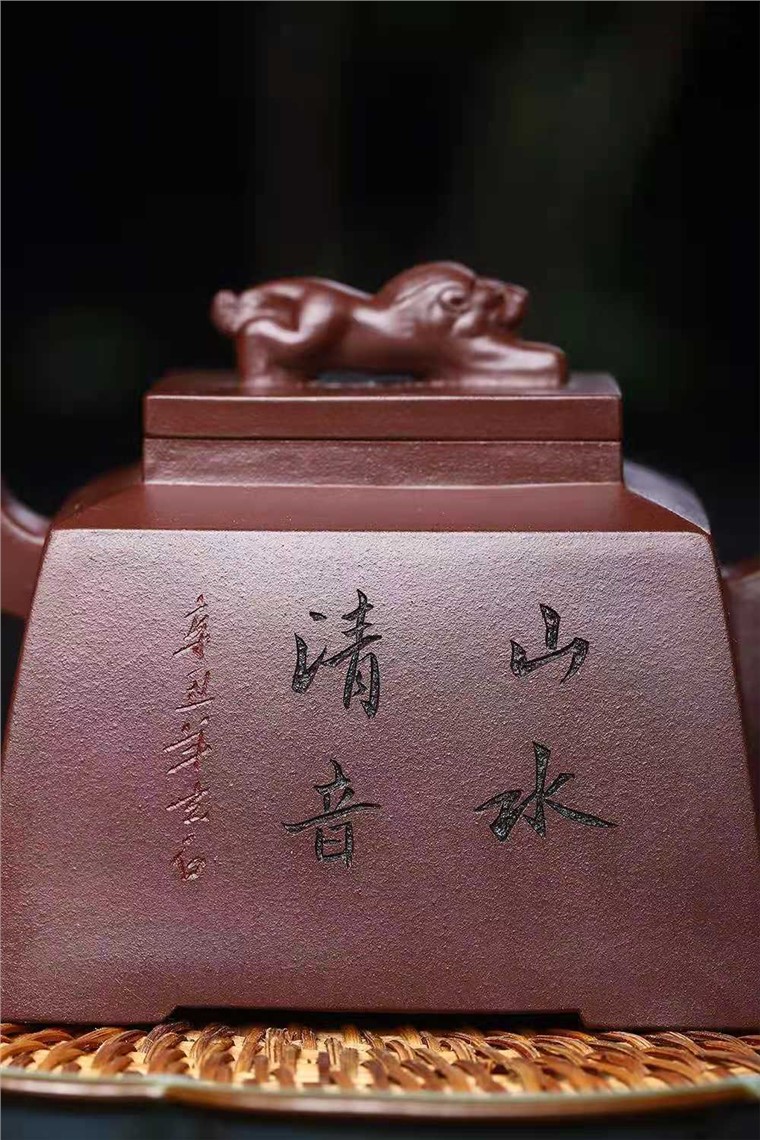 山水
清音
辛丑年玄石